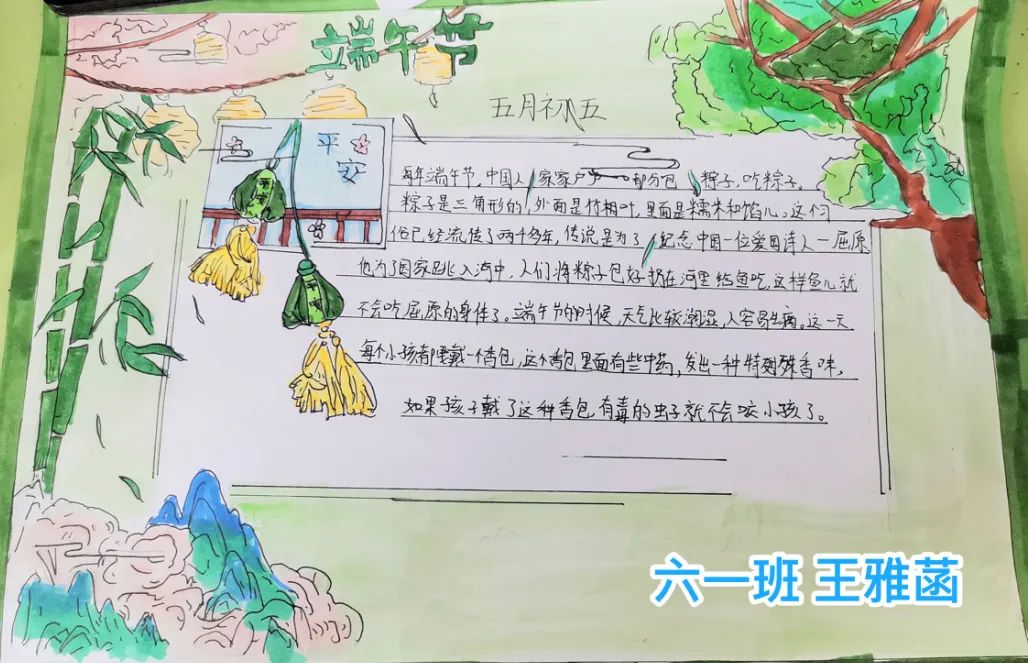 端午节
五月初五
平安
每年端午节,中国人家家户户都分包粽子,吃粽子。
粽子是三角形的,外面是竹相叶,里面是糯米和馅儿。这个习
俗已经流传了两千多年,传说是为了纪念中国一位爱国诗人—屈原
他为了国家跳入河中,人们将粽子包好扔在河里给鱼吃,这样鱼儿就
不会吃屈原的身体了。端午节的时候,天气比较潮湿,人容易生病。这一天
每个小孩都要戴一个香包,这个香包里面有些中药,发出一种特殊香味,
如果孩子戴了这种香包有毒的虫子就不会咬小孩了。
平安
平安
六一班 王雅菡